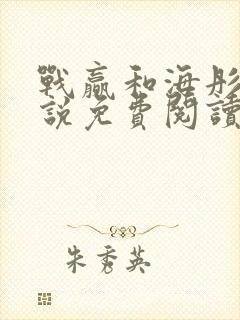 戰贏和海彤
說免費閱讀
朱秀英